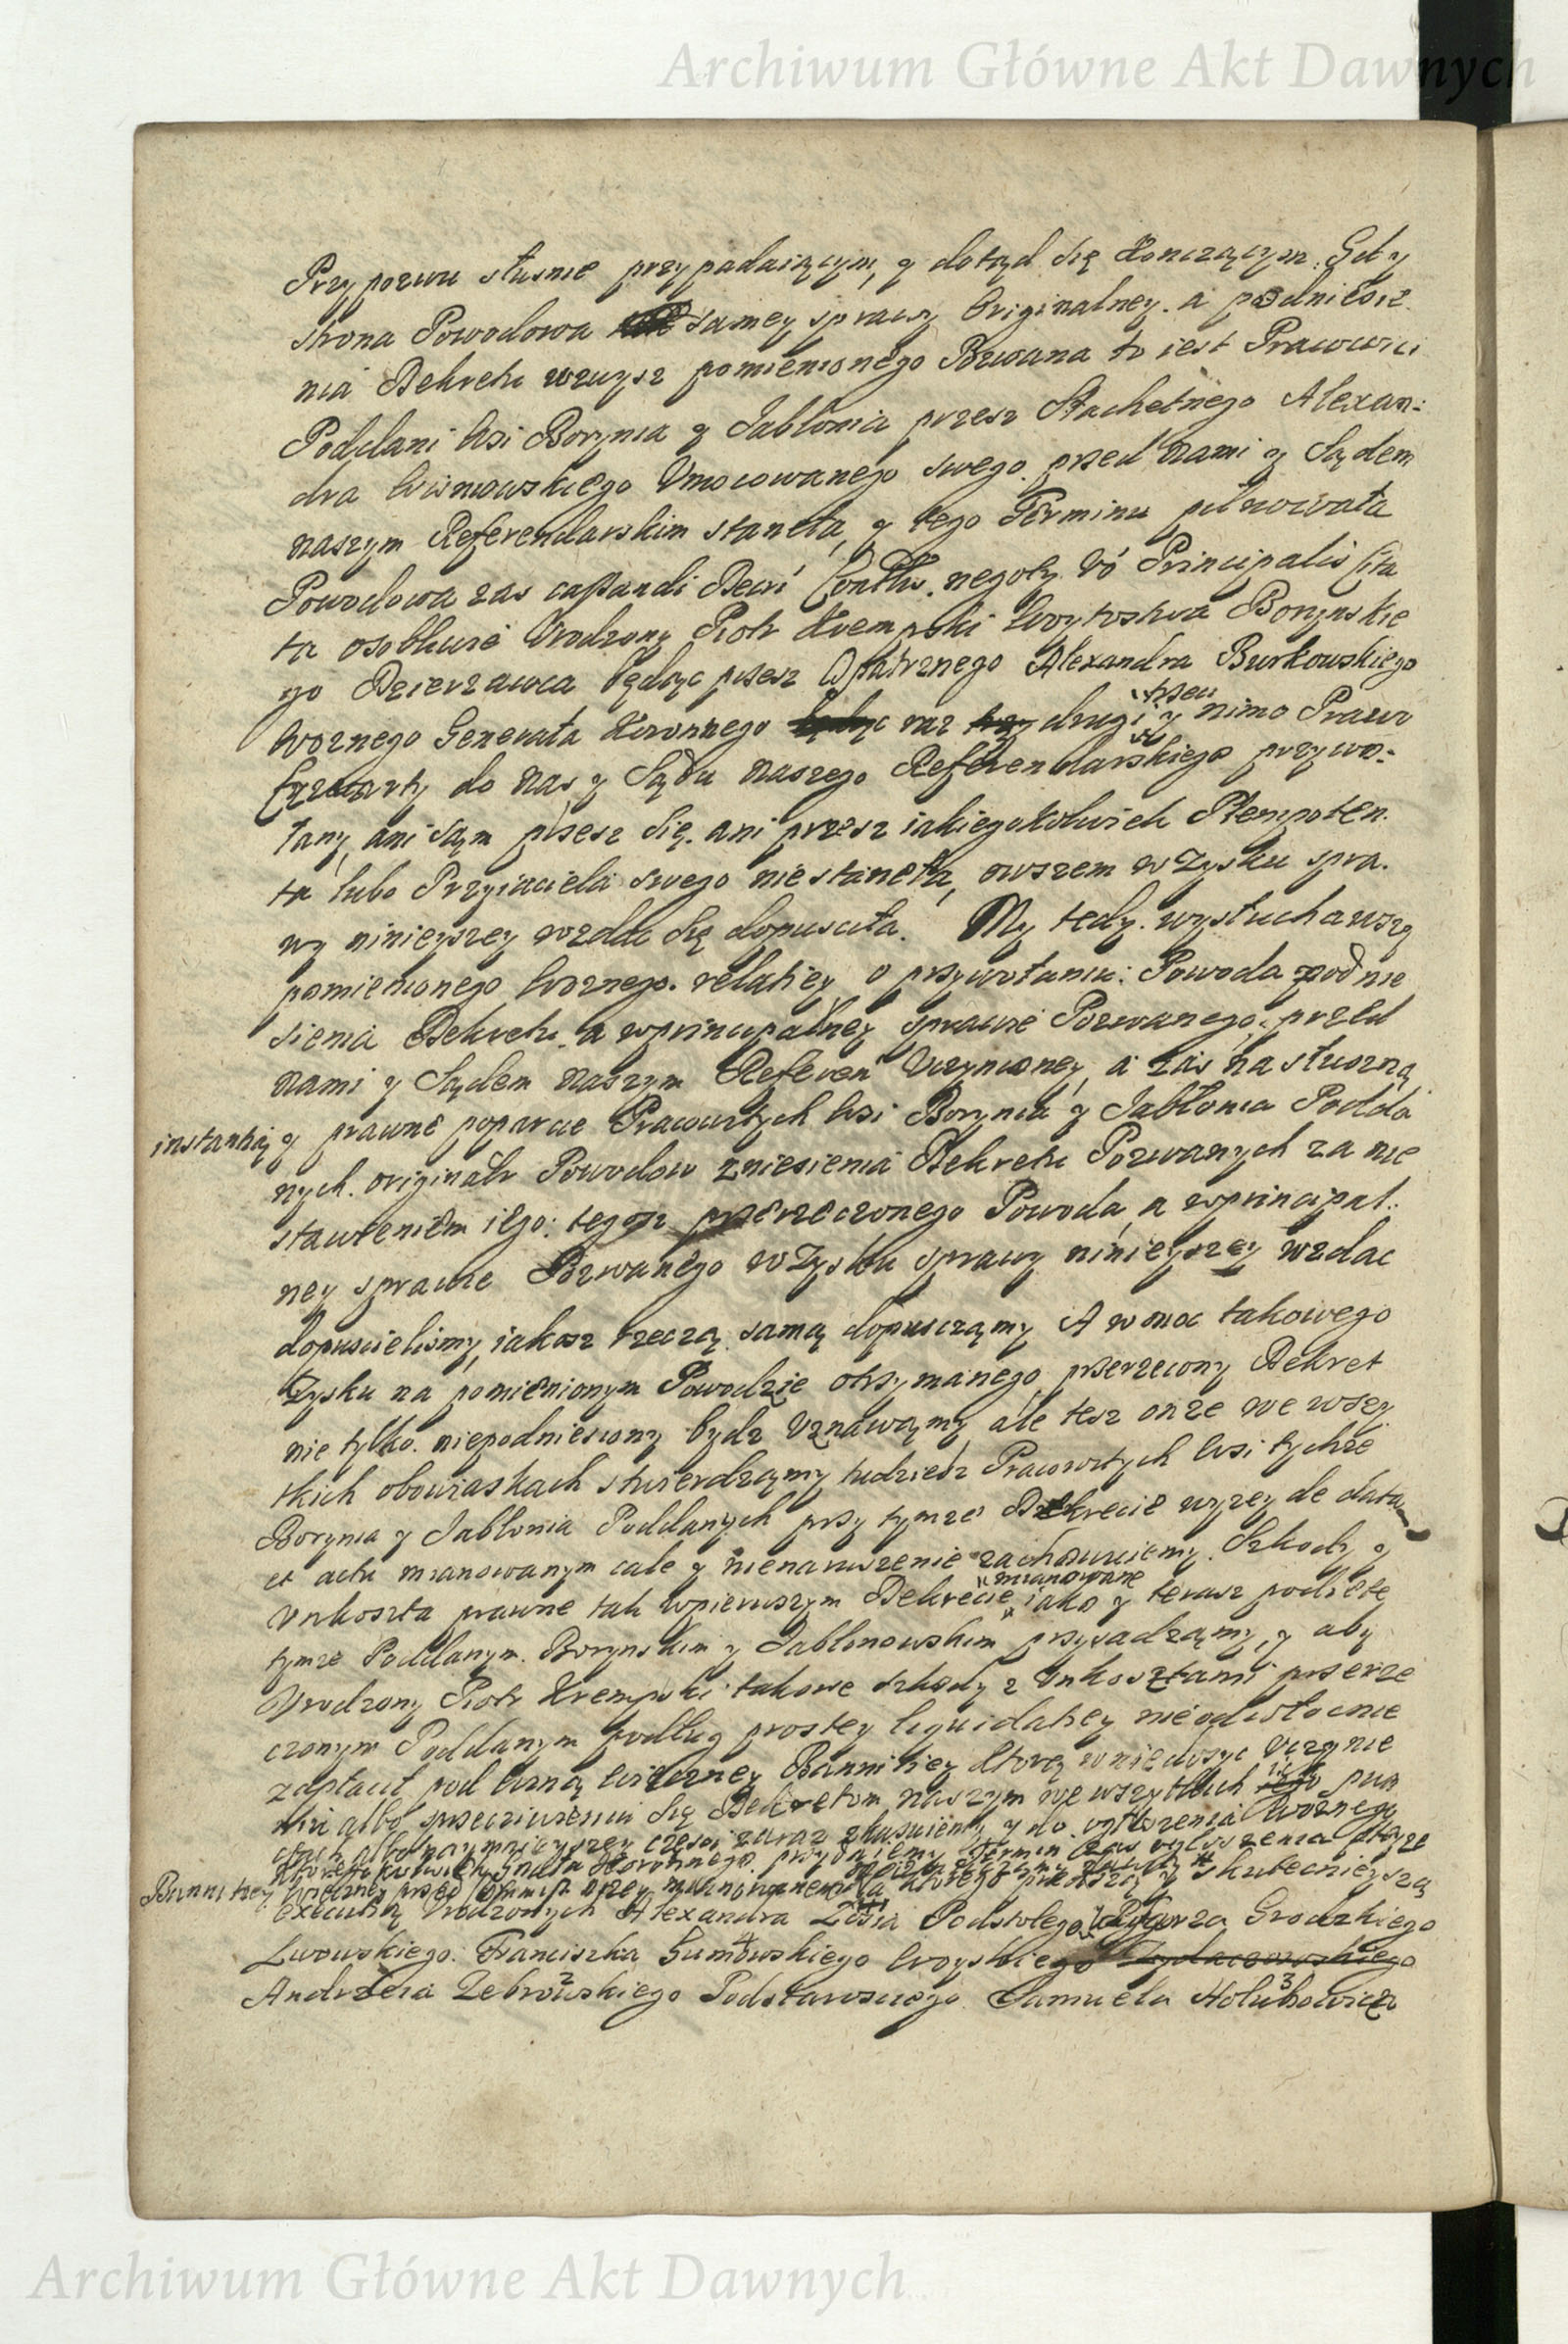 Archiwum Główne Akt Dawnych
Przy pozwu słusnie przypadaiącym, y dotąd się Konczącym. Gdy
strona Powodowa samey sprawy Originalney. a podniesie
nia Dekretu wzwysz pomienionego Pozwana to iest Pracowici
Poddani Wsi Borynia y Jabłonia przesz Slachetnego Alexan:
dra Wisniowskiego Vmocowanego swego. przed Nami y Sądem
naszym Referendarskim stanęła, y tego Terminu pilnowała
Powodowa zas cassandi Decri negoty vó Principalis Cita
ta osobliwie Vrodzony Piotr Krempski Woytostwa Borynskie
go Dzierzawca będąc przesz Opatrznego Alexandra Burkowskiego
Woznego Generała Koronnego raz drugi trzeci y nimo Prawo
Czwarty do Nas y Sądu Naszego Referendarskiego przywo:
łany, ani sąm przesz się. ani przesz iakiegokolwiek Plenipoten.
ta lubo Przyiaciela swego niestanęła, owszem w Zysku spra.
wy ninieyszey wzdac się dopusciła. My tedy. wysłuchawszy
pomienionego Woznego. relatiey o przywołaniu: Powoda podnie
sienia Dekretu. a wprincipalney sprawie Pozwanego. przed
Nami y Sądem Naszym Referen Vczynioney, a zas na słuszną
instantią y prawne poparcie Pracowitych Wsi Borynia y Jabłonia Podda
nych. originalr Powodow zniesienia Dekretu Pozwanych za nie
stawieniem iego: tegosz przerzeczonego Powoda, a wprincipal:
ney sprawie Pozwanego w Zysku sprawy ninieyszey wzdac
dopuscielismy, iakosz rzeczą samą dopusczamy A w moc takowego
Zysku na pomienionym Powodzie otrzymanego przerzecony Dekret
nie tylko. niepodniesiony bydz Vznawamy, ale tesz onze we wszy
tkich obowiaskach stwierdzamy tudziesz Pracowitych Wsi tychze
Borynia y Jabłonia Poddanych przy tymze Dekrecie wyzey de data
et actu mianowanym cale y nienaruszenie zachowuiemy. Szkody y
Vnkoszta prawne tak wpierwszym Dekrecie mianowane iako y terasz podięte
tymze Poddanym. Borynskim y Jabłonowskim przysadzamy, y aby
Vrodzony Piotr Krempski takowe szkody z Vnkosztami przerze
czonym Poddanym podług prostey liquidatiey nieodwłocznie
zapłacił pod winą wieczney Bannitiey Ktorą wniedosyc Vczynie
niu albo sprzeciwieniu się Dekretom naszym we wszytkich pun
ctach albo naymnieyszey czesci zaraz y do ogłoszenia Woznego
Ktoregokolwiek Gnrła Koronnego. przydaiemy Termin czas ogłoszenia teyze
Bannitiey wieczney przed
executią Vrodzonych Alexandra Podstolego Pisarza Grodzkiego
Lwowskiego. Franciszka Gumowskiego Woyskiego Zydaczowskiego
Andrzeia Zebrowskiego Podstarosciego. Samuela Hołubowicza
Archiwum Główne Akt Dawnych